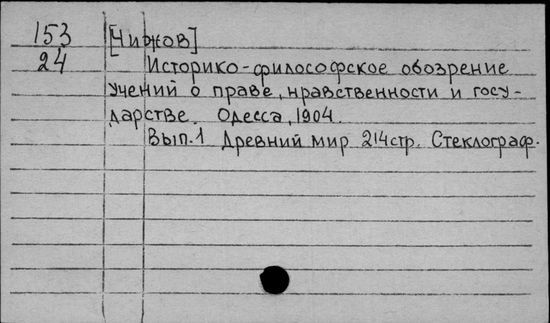 153 [Чижов]
24 Историко-философское обозрение
учений о праве, нравственности и госу-
дарстве. Одесса, 1904.
Вып.1 Древний мир 214стр. Стеклограф.